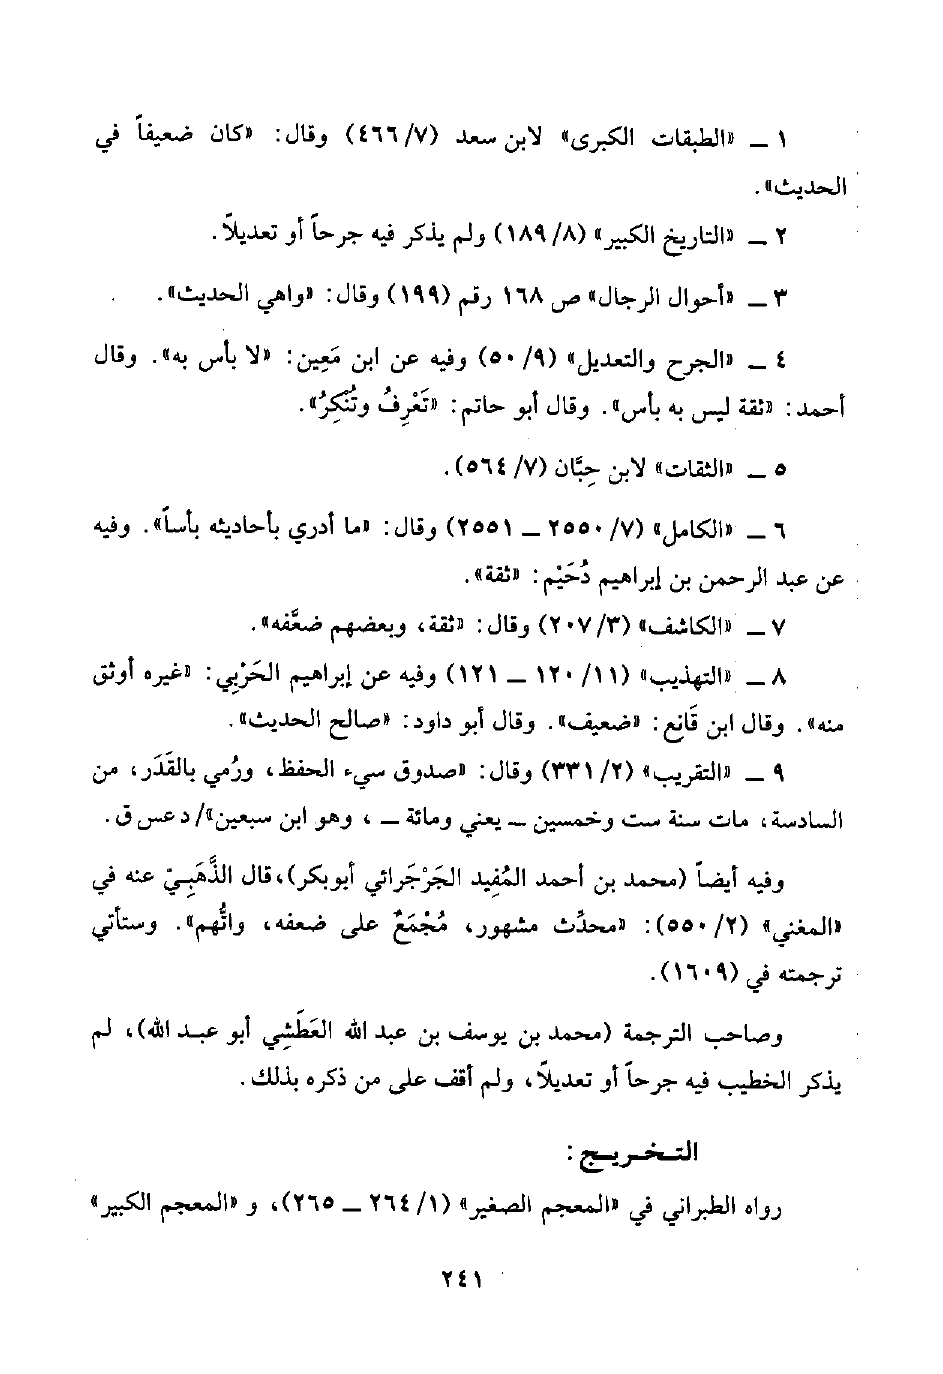 ١ ــ «الطبقات الكبرى» لابن سعد (٤٦٦/٧) وقال: «كان ضعيفاً في
الحديث».
٢ ــ «التاريخ الكبير» (١٨٩/٨) ولم يذكر فيه جرحاً أو تعديلاً.
٣ ــ «أحوال الرجال» ص ١٦٨ رقم (١٩٩) وقال: «واهي الحديث».
٤ ــ «الجرح والتعديل» (٥٠/٩) وفيه عن ابن مَعِين: «لا بأس به». وقال
أحمد: «ثقة ليس به بأس». وقال أبو حاتم: «تَعْرِفُ وتُنْكِرُ».
٥ ــ «الثقات» لابن حِبَّان (٥٦٤/٧).
٦ ــ «الكامل» (٢٥٥٠/٧ ــ ٢٥٥١) وقال: «ما أدري بأحاديثه بأساً». وفيه
عن عبد الرحمن بن إبراهيم دُحَيْم: «ثقة».
٧ ــ «الكاشف» (٢٠٧/٣) وقال: «ثقة، وبعضهم ضعَّفه».
٨ ــ «التهذيب» (١٢٠/١١ ــ ١٢١) وفيه عن إبراهيم الحَرْبي: «غيره أوثق
منه». وقال ابن قَانِع: «ضعيف». وقال أبو داود: «صالح الحديث».
٩ ــ «التقريب» (٣٣١/٢) وقال: «صدوق سيء الحفظ، ورُمي بالقَدَر، من
السادسة، مات سنة ست وخمسين ــ يعني ومائة ــ ، وهو ابن سبعين»/ د عس ق.
وفيه أيضاً (محمد بن أحمد المُفِيد الجَرْجَرائي أبوبكر)،قال الذَّهَبِيّ عنه في
«المغني» (٥٥٠/٢): «محدِّث مشهور، مُجْمَعٌ على ضعفه، واتُّهم». وستأتي
ترجمته في (١٦٠٩).
وصاحب الترجمة (محمد بن يوسف بن عبد الله العَطَشِي أبو عبد الله)، لم
يذكر الخطيب فيه جرحاً أو تعديلاً، ولم أقف على من ذكره بذلك.
التخريج:
رواه الطبراني في «المعجم الصغير» (٢٦٤/١ ــ ٢٦٥)، و «المعجم الكبير»
٢٤١